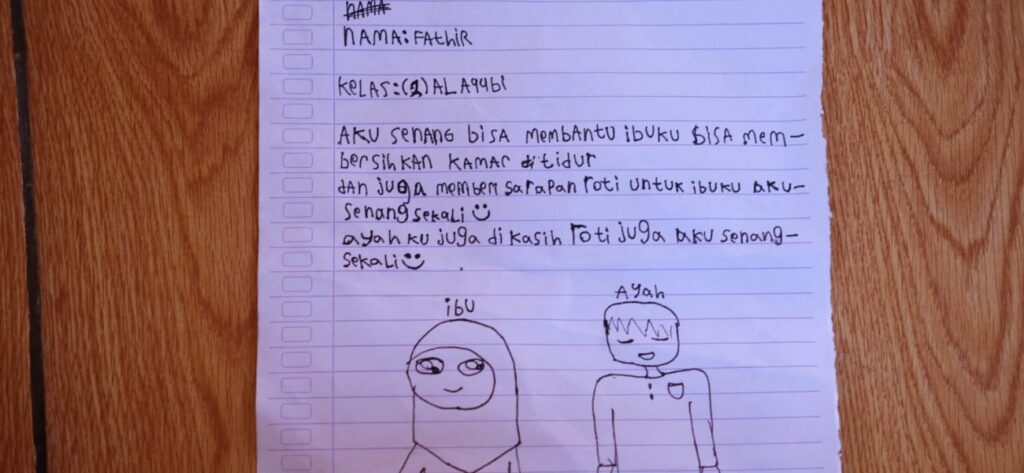 NAMA
NAMA: FAthiR
KELAS:(2) AL Aqqbi
AKU SENANG BISA MEMBANTU IBUKU BISA MEM-
bERSihKAN KAMAr tidur
DAN JUgA MEMBERI SARAPAN roti UNTUK IBUKU AKU-
SENANG SEKALI ☺
AyAh KU JUgA di KASih roti JUgA AKU SENANG-
SEKALI ☺
iBU
AyAh